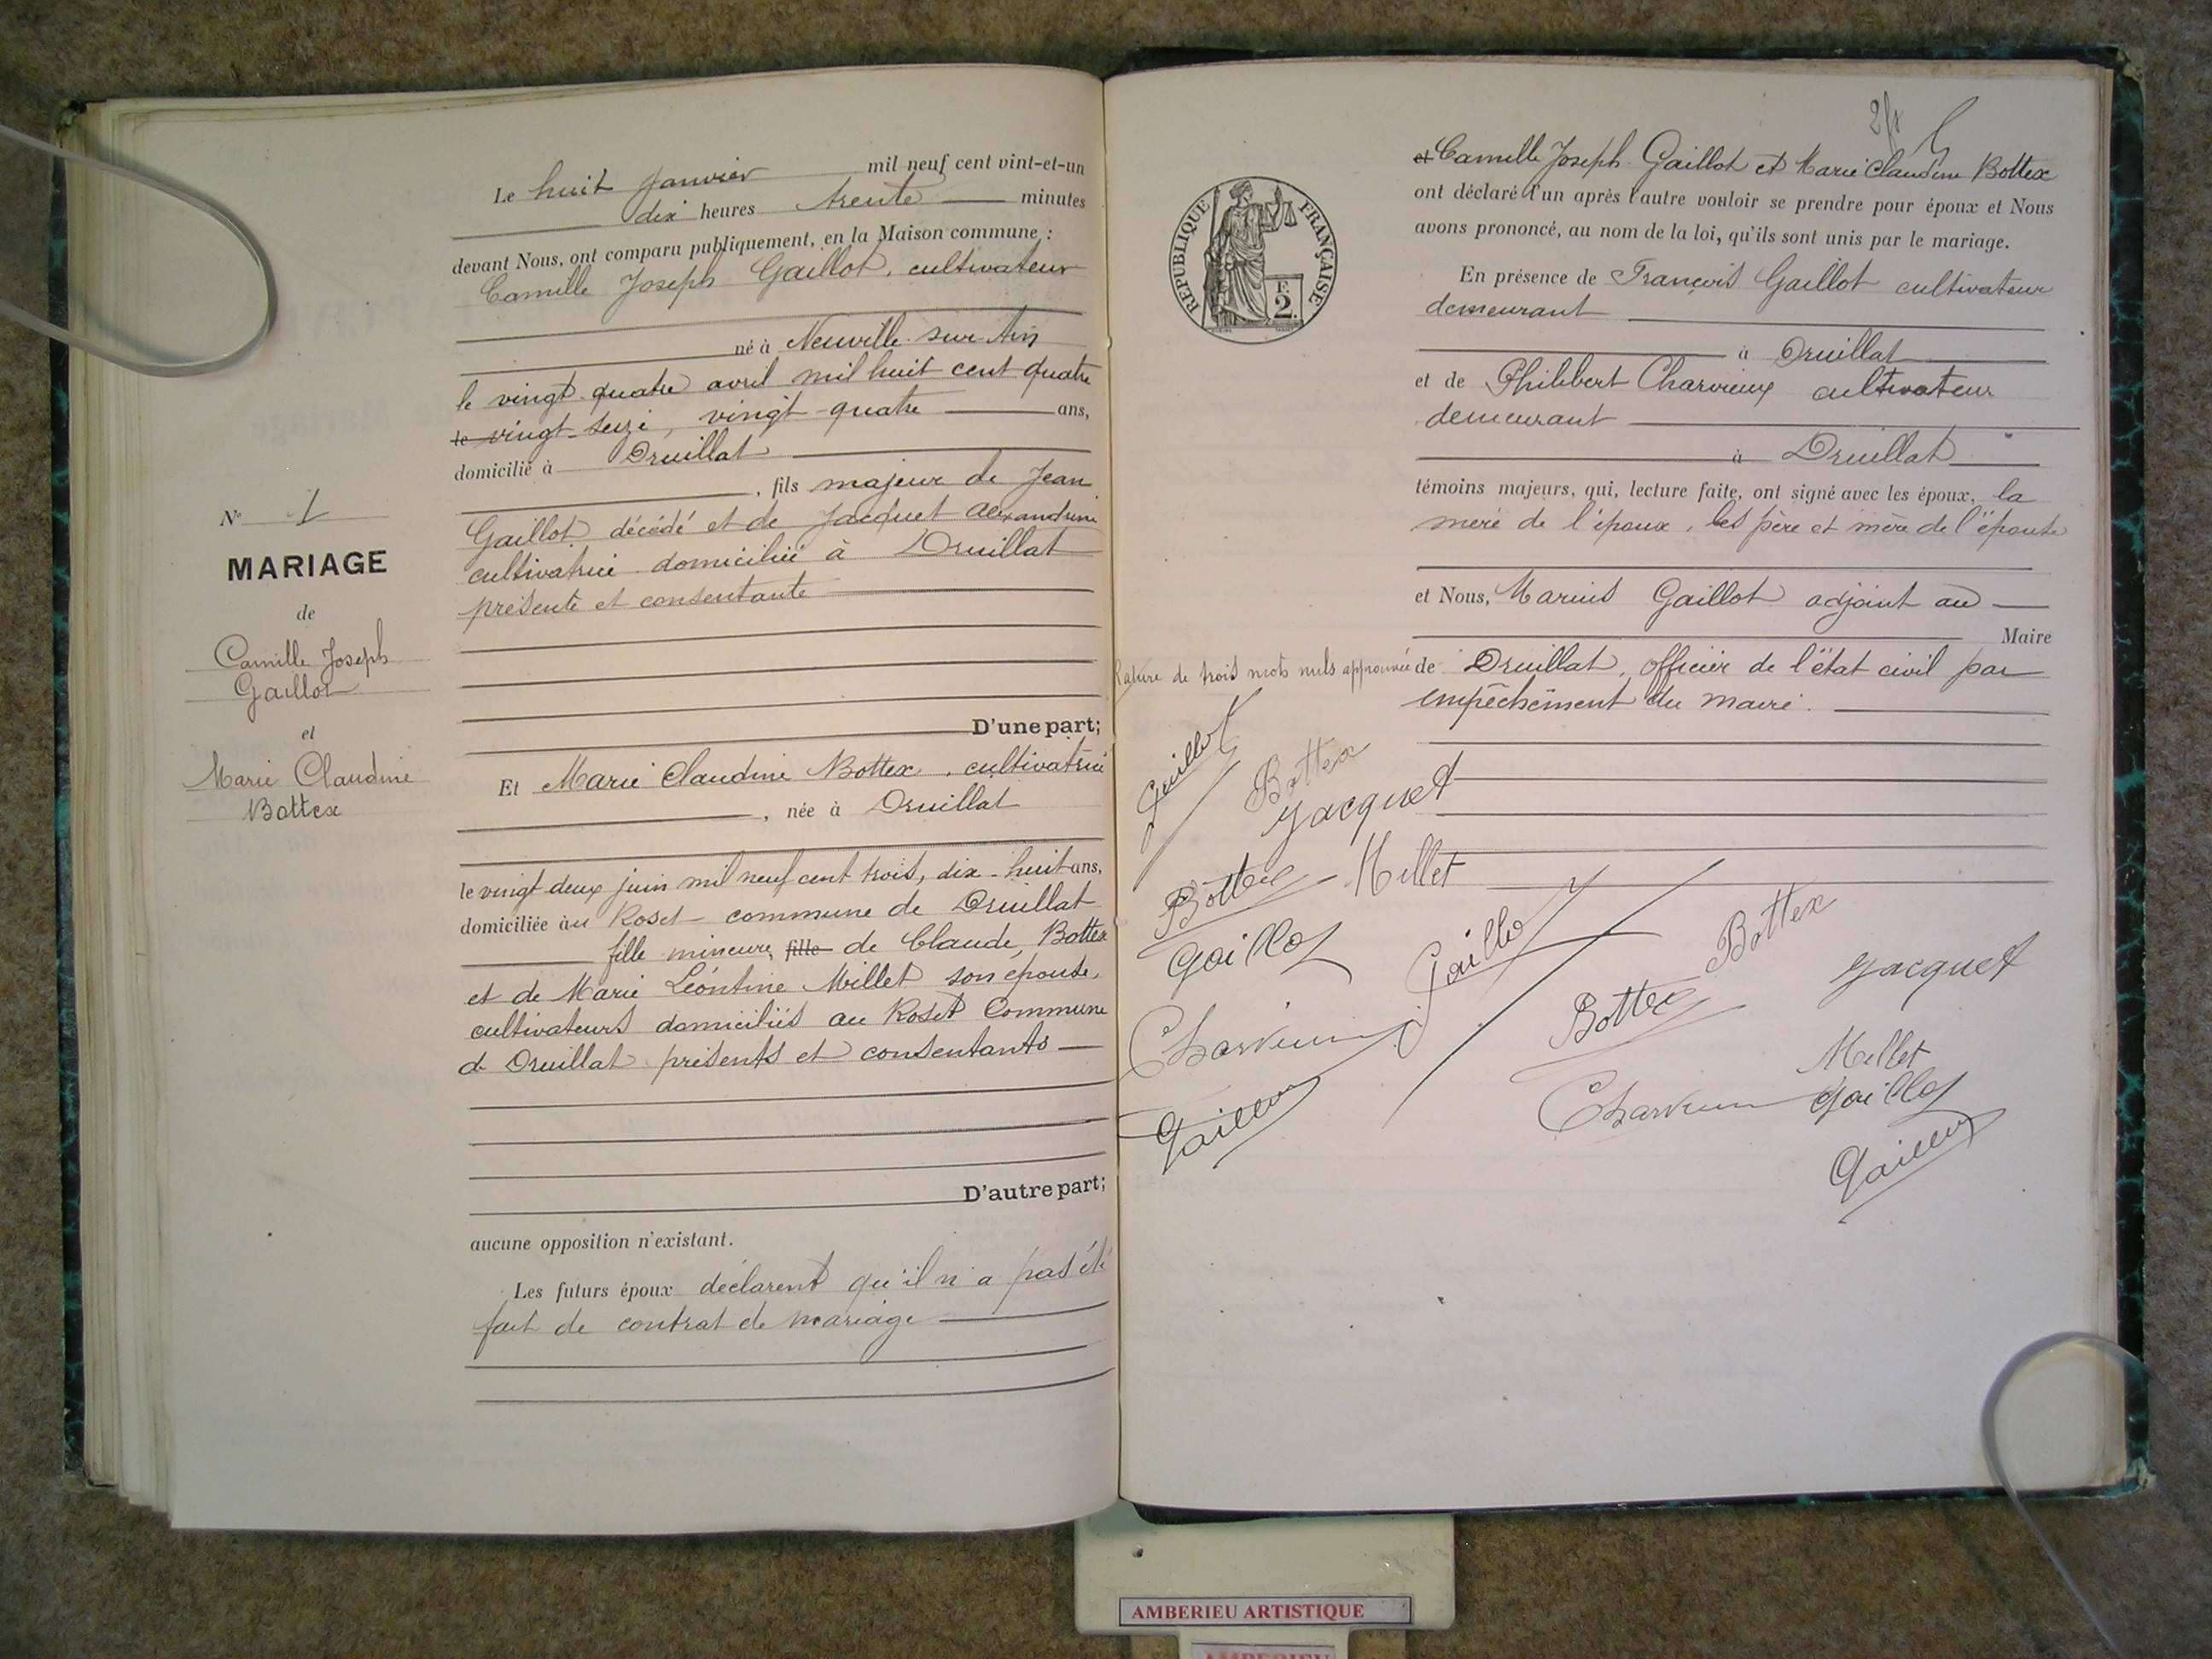 Le huit janvier mil neuf cent vint-et-un
dix heures trente minutes
devant Nous, ont comparu publiquement, en la Maison commune :
Camille Joseph Gaillot, cultivateur
né à Neuville sur Ain
le vingt quatre avril mil huit cent quatre
le vingt-seize, vingt-quatre ans,
domicilié à Druillat
, fils majeur de Jean
Gaillot décédé et de Jacquet Alexandrine
cultivatrice domiciliée à Druillat
présente et consentante
D'une part;
Et Marie Claudine Bottex, cultivatrice
, née à Druillat
le vingt deux juin mil neuf cent trois, dix-huit ans,
domiciliée au Roset commune de Druillat
fille mineure fille de Claude Bottex
et de Marie Léontine Millet son épouse,
cultivateurs domiciliés au Roset Commune
de Druillat présents et consentants
D'autre part;
aucune opposition n'existant.
Les futurs époux déclarent qu'il n'a pas été
fait de contrat de mariage
N° 1
MARIAGE
de
Camille Joseph
Gaillot
et
Marie Claudine
Bottex
2/8
RÉPUBLIQUE FRANÇAISE
F.
2.
et Camille Joseph Gaillot et Marie Claudine Bottex
ont déclaré l'un après l'autre vouloir se prendre pour époux et Nous
avons prononcé, au nom de la loi, qu'ils sont unis par le mariage.
En présence de François Gaillot cultivateur
demeurant
à Druillat
et de Philibert Charvieux cultivateur
demeurant
à Druillat
témoins majeurs, qui, lecture faite, ont signé avec les époux, la
mère de l'époux, les père et mère de l'épouse
et Nous, Marius Gaillot adjoint au
Maire
Rature de trois mots nuls approuvée
de Druillat, officier de l'état civil par
empêchement du maire.
Gaillot
Bottex
Jacquet
Bottex Millet
Gaillot
Gaillot
Bottex
Jacquet
Charvieux
Bottex
Millet
Gaillot
Charvieux
Gaillot
Gaillot
AMBERIEU ARTISTIQUE
AMBERIEU